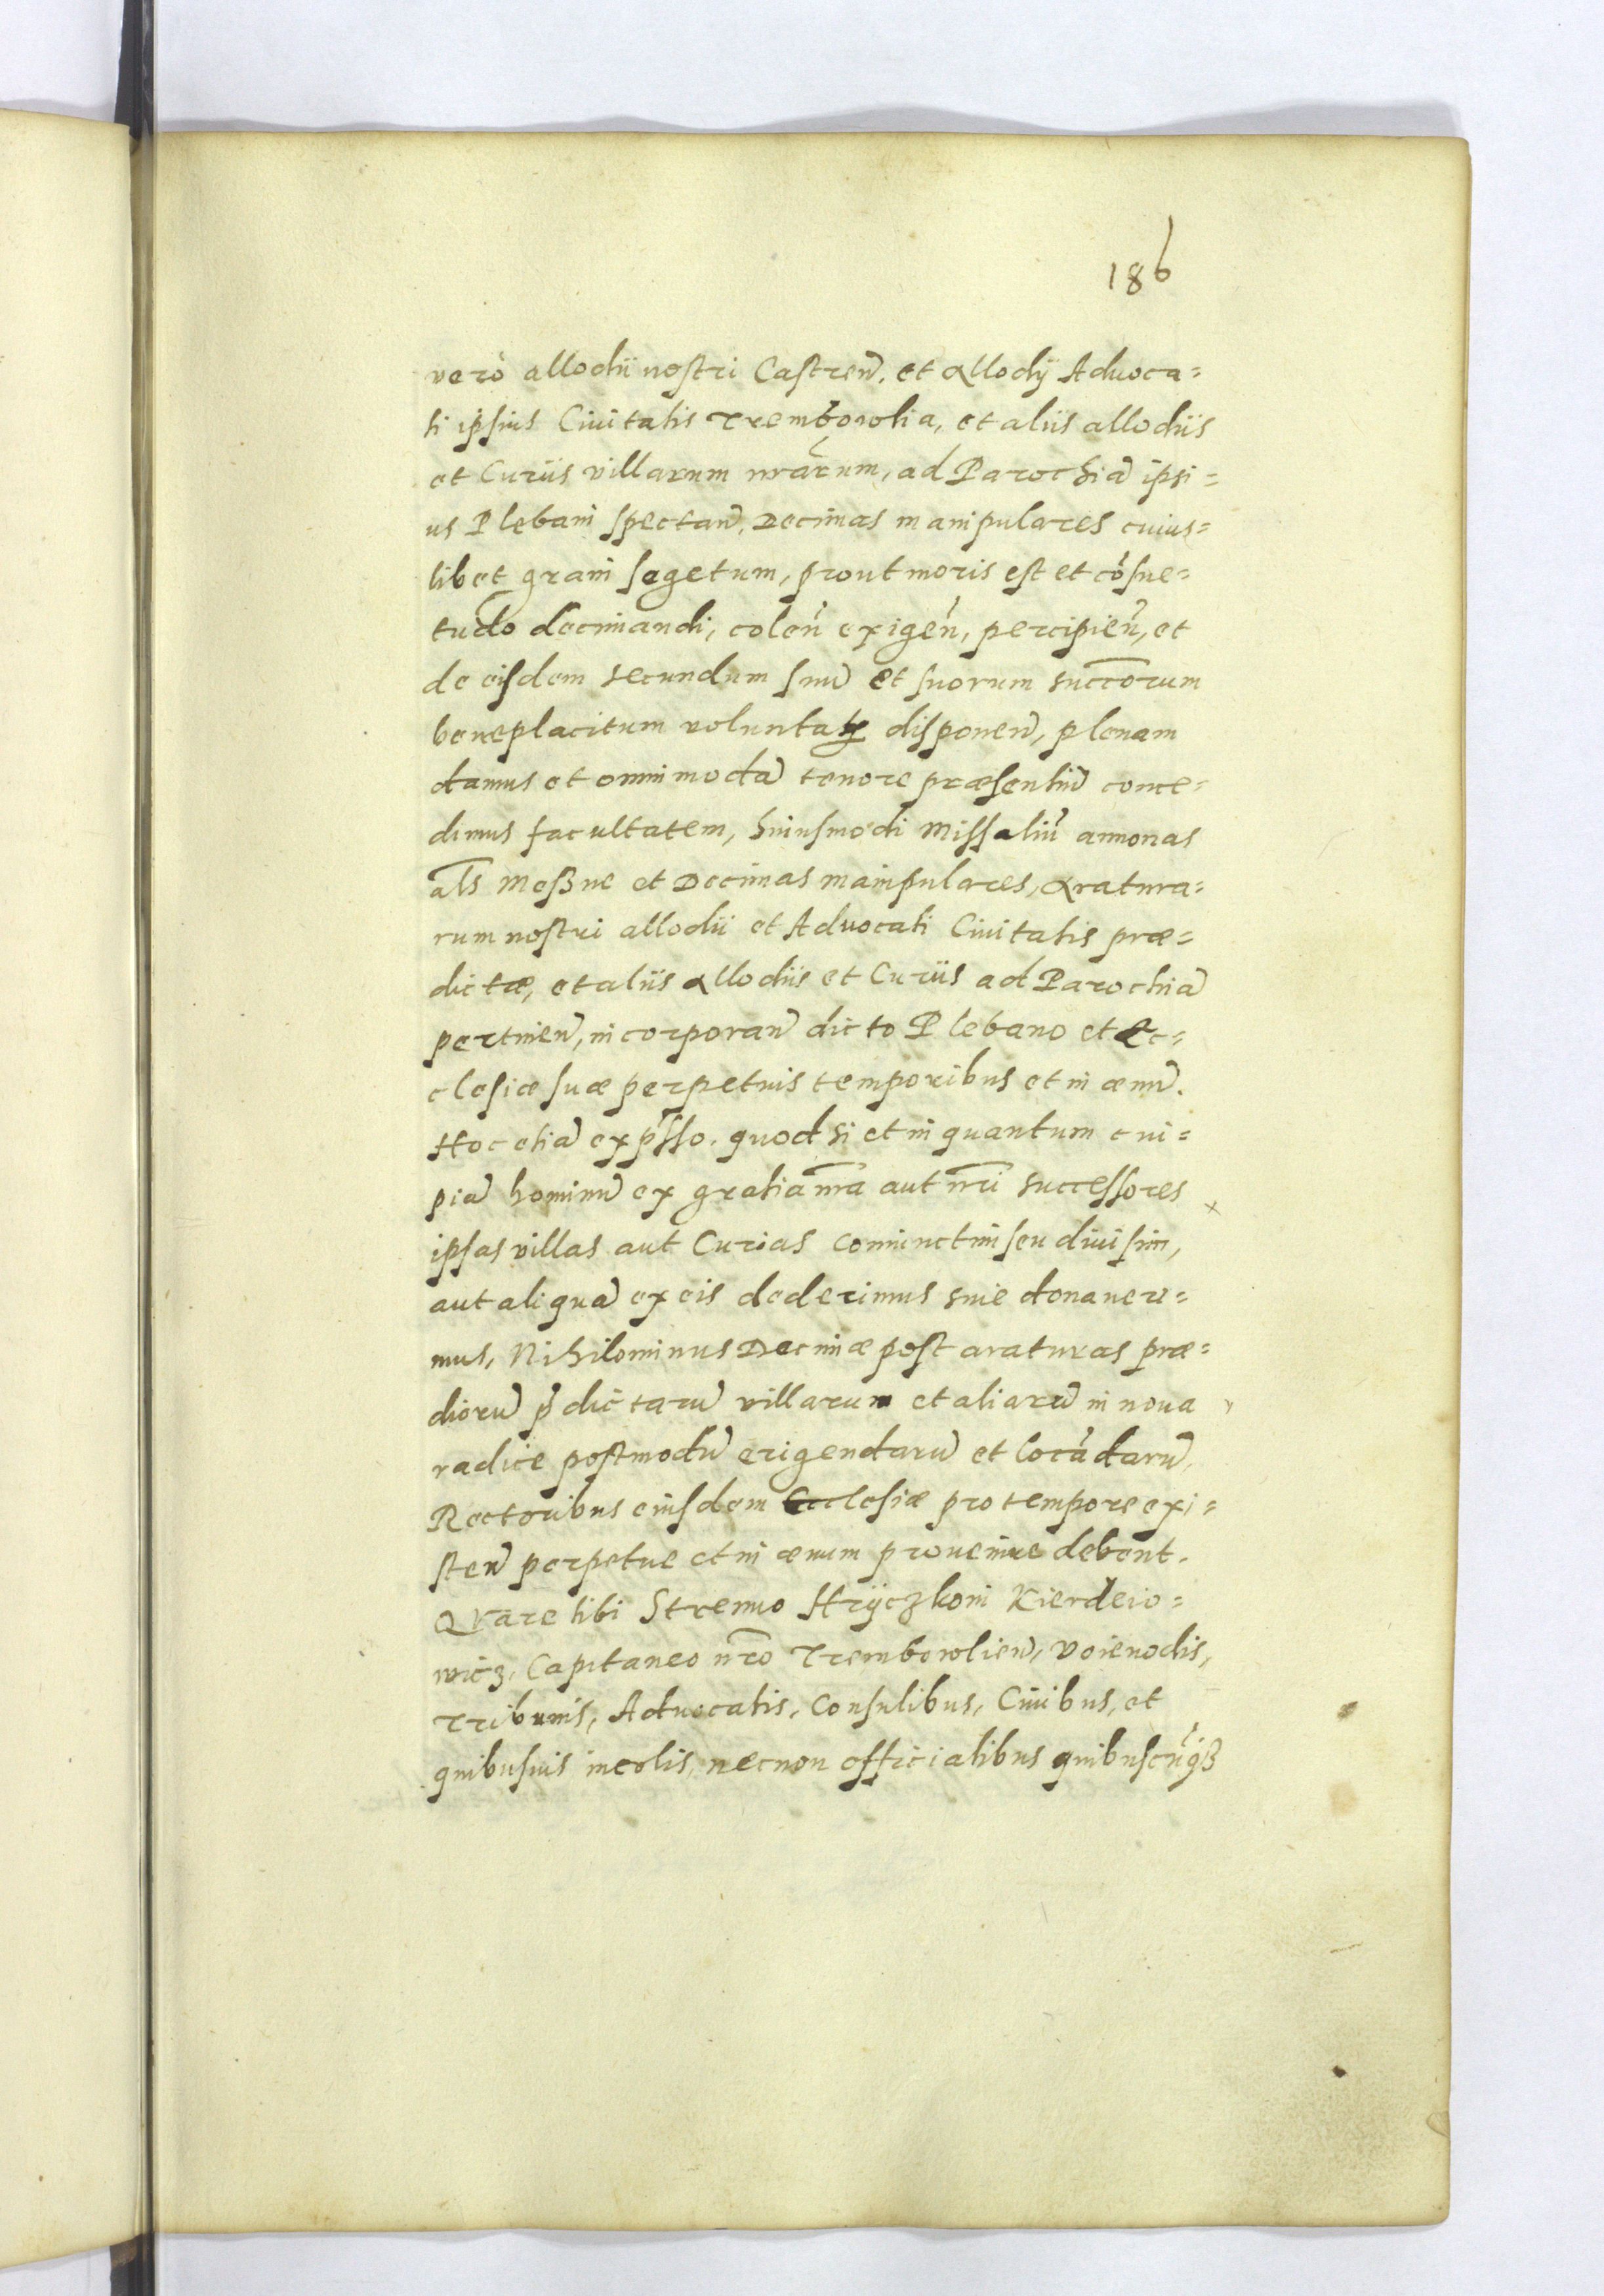 186
verò allodii nostri Castren̄. et allodÿ Advoca=
ti ipsius Ciuitatis Trembowlia, et aliis allodiis
et Curiis villarum nrārum, ad Parochiā ipsi=
us Plebani spectan̄, Decimas manipulares cuius=
libet grani segetum, prout moris est et cōsue=
tudo decimandi, colen̄ exigen̄, percipien̄, et
de eisdem secundum suū et suorum succōrum
beneplacitum voluntatis disponen̄, plenam
damus et omnimodā tenore præsentiū conce=
dimus facultatem, huiusmodi Missaliū annonas
al̄s Meßne et Decimas manipulares, aratura=
rum nostri allodii et Advocati Ciuitatis præ=
dictæ, et aliis allodiis et Curiis ad Parochiā
pertinen̄, incorporan̄ dicto Plebano et Ec=
clesiæ suæ perpetuis temporibus et in æuū.
Hoc etiā exp̄sso. quod si et in quantum cui=
piā hominū ex gratia nr̄a aut nr̄i successores
ipsas villas aut Curias coniunctim seu diuisim,
aut aliquā ex eis dederimus siue donaueri=
mus, Nihilominus Decimæ post araturas præ=
diorū p̄dictarū villarum et aliarū in noua
radice postmodū erigendarū et locādarū,
Rectoribus eiusdem Ecclesiæ pro tempore exi=
sten̄ perpetue et in æuum prouenire debent.
Quare tibi Strenuo Hryczkoni Kierdeio=
wicz, Capitaneo nr̄o Trembowlien̄, Voieuodis,
Tribunis, Advocatis, Consulibus, Ciuibus, et
quibusuis incolis, necnon officialibus quibuscūqß